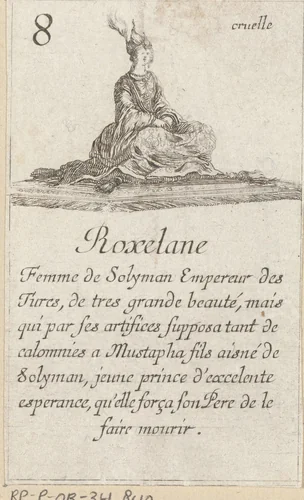 8
cruelle
Roxelane
Femme de Solyman Empereur des
Turcs, de tres grande beauté, mais
qui par ses artifices supposa tant de
calomnies a Mustapha fils aisné de
Solyman, jeune prince d'excelente
esperance, qu'elle força son Pere de le
faire mourir.
RP-P-OB-34